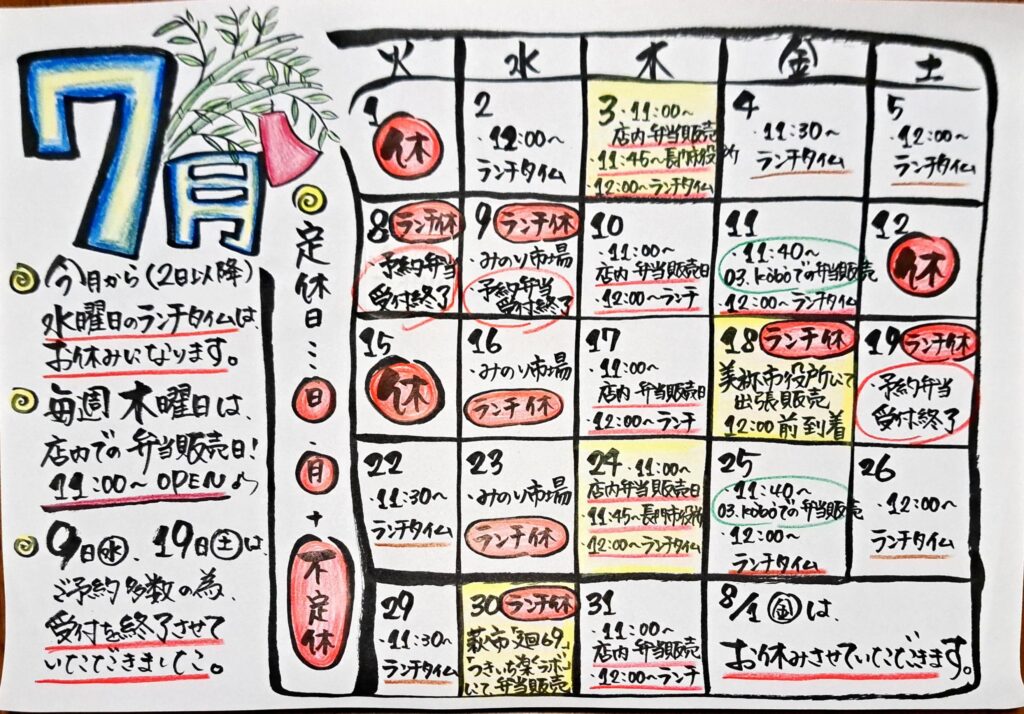 7月
・今月から(2日以降)
水曜日のランチタイムは、
お休みになります。
・毎週木曜日は、
店内での弁当販売日!
11:00〜OPEN♪
・9日㊌、19日㊏は、
ご予約多数の為、
受付を終了させて
いただきました。
・定休日…㊐・㊊+
不定休
火 水 木 金 土
1
休
2
・12:00〜
ランチタイム
3・11:00〜
店内弁当販売
・11:45〜長門市役所
・12:00〜ランチタイム
4
・11:30〜
ランチタイム
5
・12:00〜
ランチタイム
8 ランチ休
・予約弁当
受付終了
9 ランチ休
・みのり市場
・予約弁当
受付終了
10
・11:00〜
店内弁当販売日
・12:00〜ランチ
11
・11:40〜
03.koboでの弁当販売
・12:00〜ランチタイム
12
休
15
休
16
・みのり市場
ランチ休
17
・11:00〜
店内弁当販売日
・12:00〜ランチ
18 ランチ休
美祢市役所にて
出張販売
12:00前到着
19 ランチ休
・予約弁当
受付終了
22
・11:30〜
ランチタイム
23
・みのり市場
ランチ休
24・11:00〜
店内弁当販売日
・11:45〜長門市役所
・12:00〜ランチタイム
25
・11:40〜
03.koboでの弁当販売
・12:00〜
ランチタイム
26
・12:00〜
ランチタイム
29
・11:30〜
ランチタイム
30 ランチ休
萩市「廻69」
「つきいち楽ラボ」
にて弁当販売
31
・11:00〜
店内弁当販売
・12:00〜ランチ
8/1㊎は、
お休みさせていただきます。